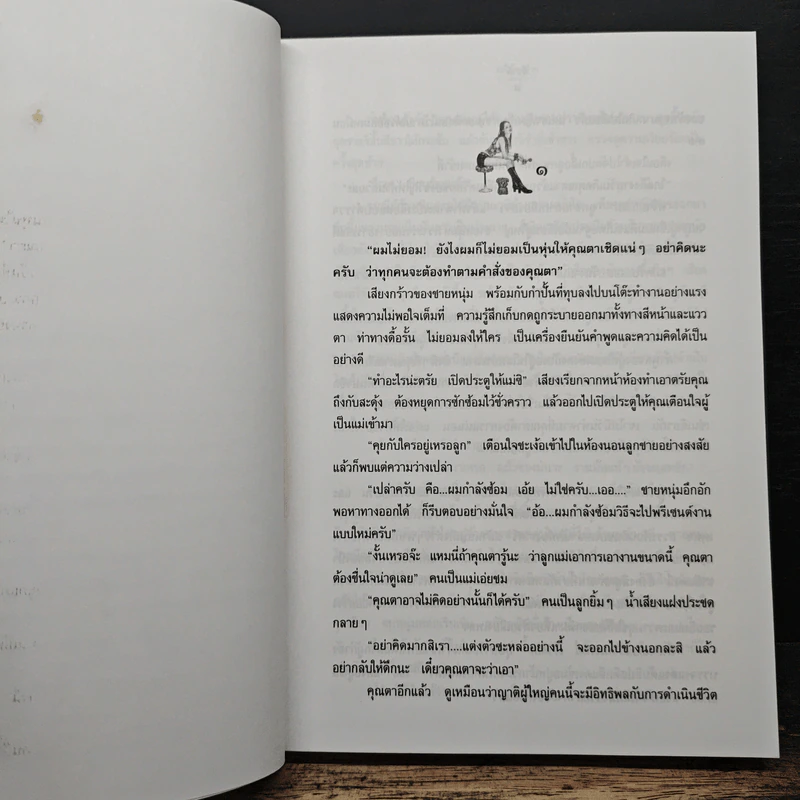 ๑
“ผมไม่ยอม! ยังไงผมก็ไม่ยอมเป็นหุ่นให้คุณตาเชิดแน่ๆ อย่าคิดนะ
ครับ ว่าทุกคนจะต้องทำตามคำสั่งของคุณตา”
เสียงกร้าวของชายหนุ่ม พร้อมกับกำปั้นที่ทุบลงไปบนโต๊ะทำงานอย่างแรง
แสดงความไม่พอใจเต็มที่ ความรู้สึกเก็บกดถูกระบายออกมาทั้งทางสีหน้าและแวว
ตา ท่าทางดื้อรั้น ไม่ยอมลงให้ใคร เป็นเครื่องยืนยันคำพูดและความคิดได้เป็น
อย่างดี
“ทำอะไรน่ะตรัย เปิดประตูให้แม่ซิ” เสียงเรียกจากหน้าห้องทำเอาตรัยคุณ
ถึงกับสะดุ้ง ต้องหยุดการซักซ้อมไว้ชั่วคราว แล้วออกไปเปิดประตูให้คุณเตือนใจผู้
เป็นแม่เข้ามา
“คุยกับใครอยู่เหรอลูก” เตือนใจชะเง้อเข้าไปในห้องนอนลูกชายอย่างสงสัย
แล้วก็พบแต่ความว่างเปล่า
“เปล่าครับ คือ...ผมกำลังซ้อม เอ้ย ไม่ใช่ครับ...เออ....” ชายหนุ่มอึกอัก
พอหาทางออกได้ ก็รีบตอบอย่างมั่นใจ “อ้อ...ผมกำลังซ้อมวิธีจะไปพรีเซนต์งาน
แบบใหม่ครับ”
“งั้นเหรอจ๊ะ แหมนี่ถ้าคุณตารู้นะ ว่าลูกแม่เอาการเอางานขนาดนี้ คุณตา
ต้องชื่นใจน่าดูเลย” คนเป็นแม่เอ่ยชม
“คุณตาอาจไม่คิดอย่างนั้นก็ได้ครับ” คนเป็นลูกยิ้มๆ น้ำเสียงแฝงประชด
กลายๆ
“อย่าคิดมากสิเรา....แต่งตัวซะหล่ออย่างนี้ จะออกไปข้างนอกละสิ แล้ว
อย่ากลับให้ดึกนะ เดี๋ยวคุณตาจะว่าเอา”
คุณตาอีกแล้ว ดูเหมือนว่าญาติผู้ใหญ่คนนี้จะมีอิทธิพลกับการดำเนินชีวิต